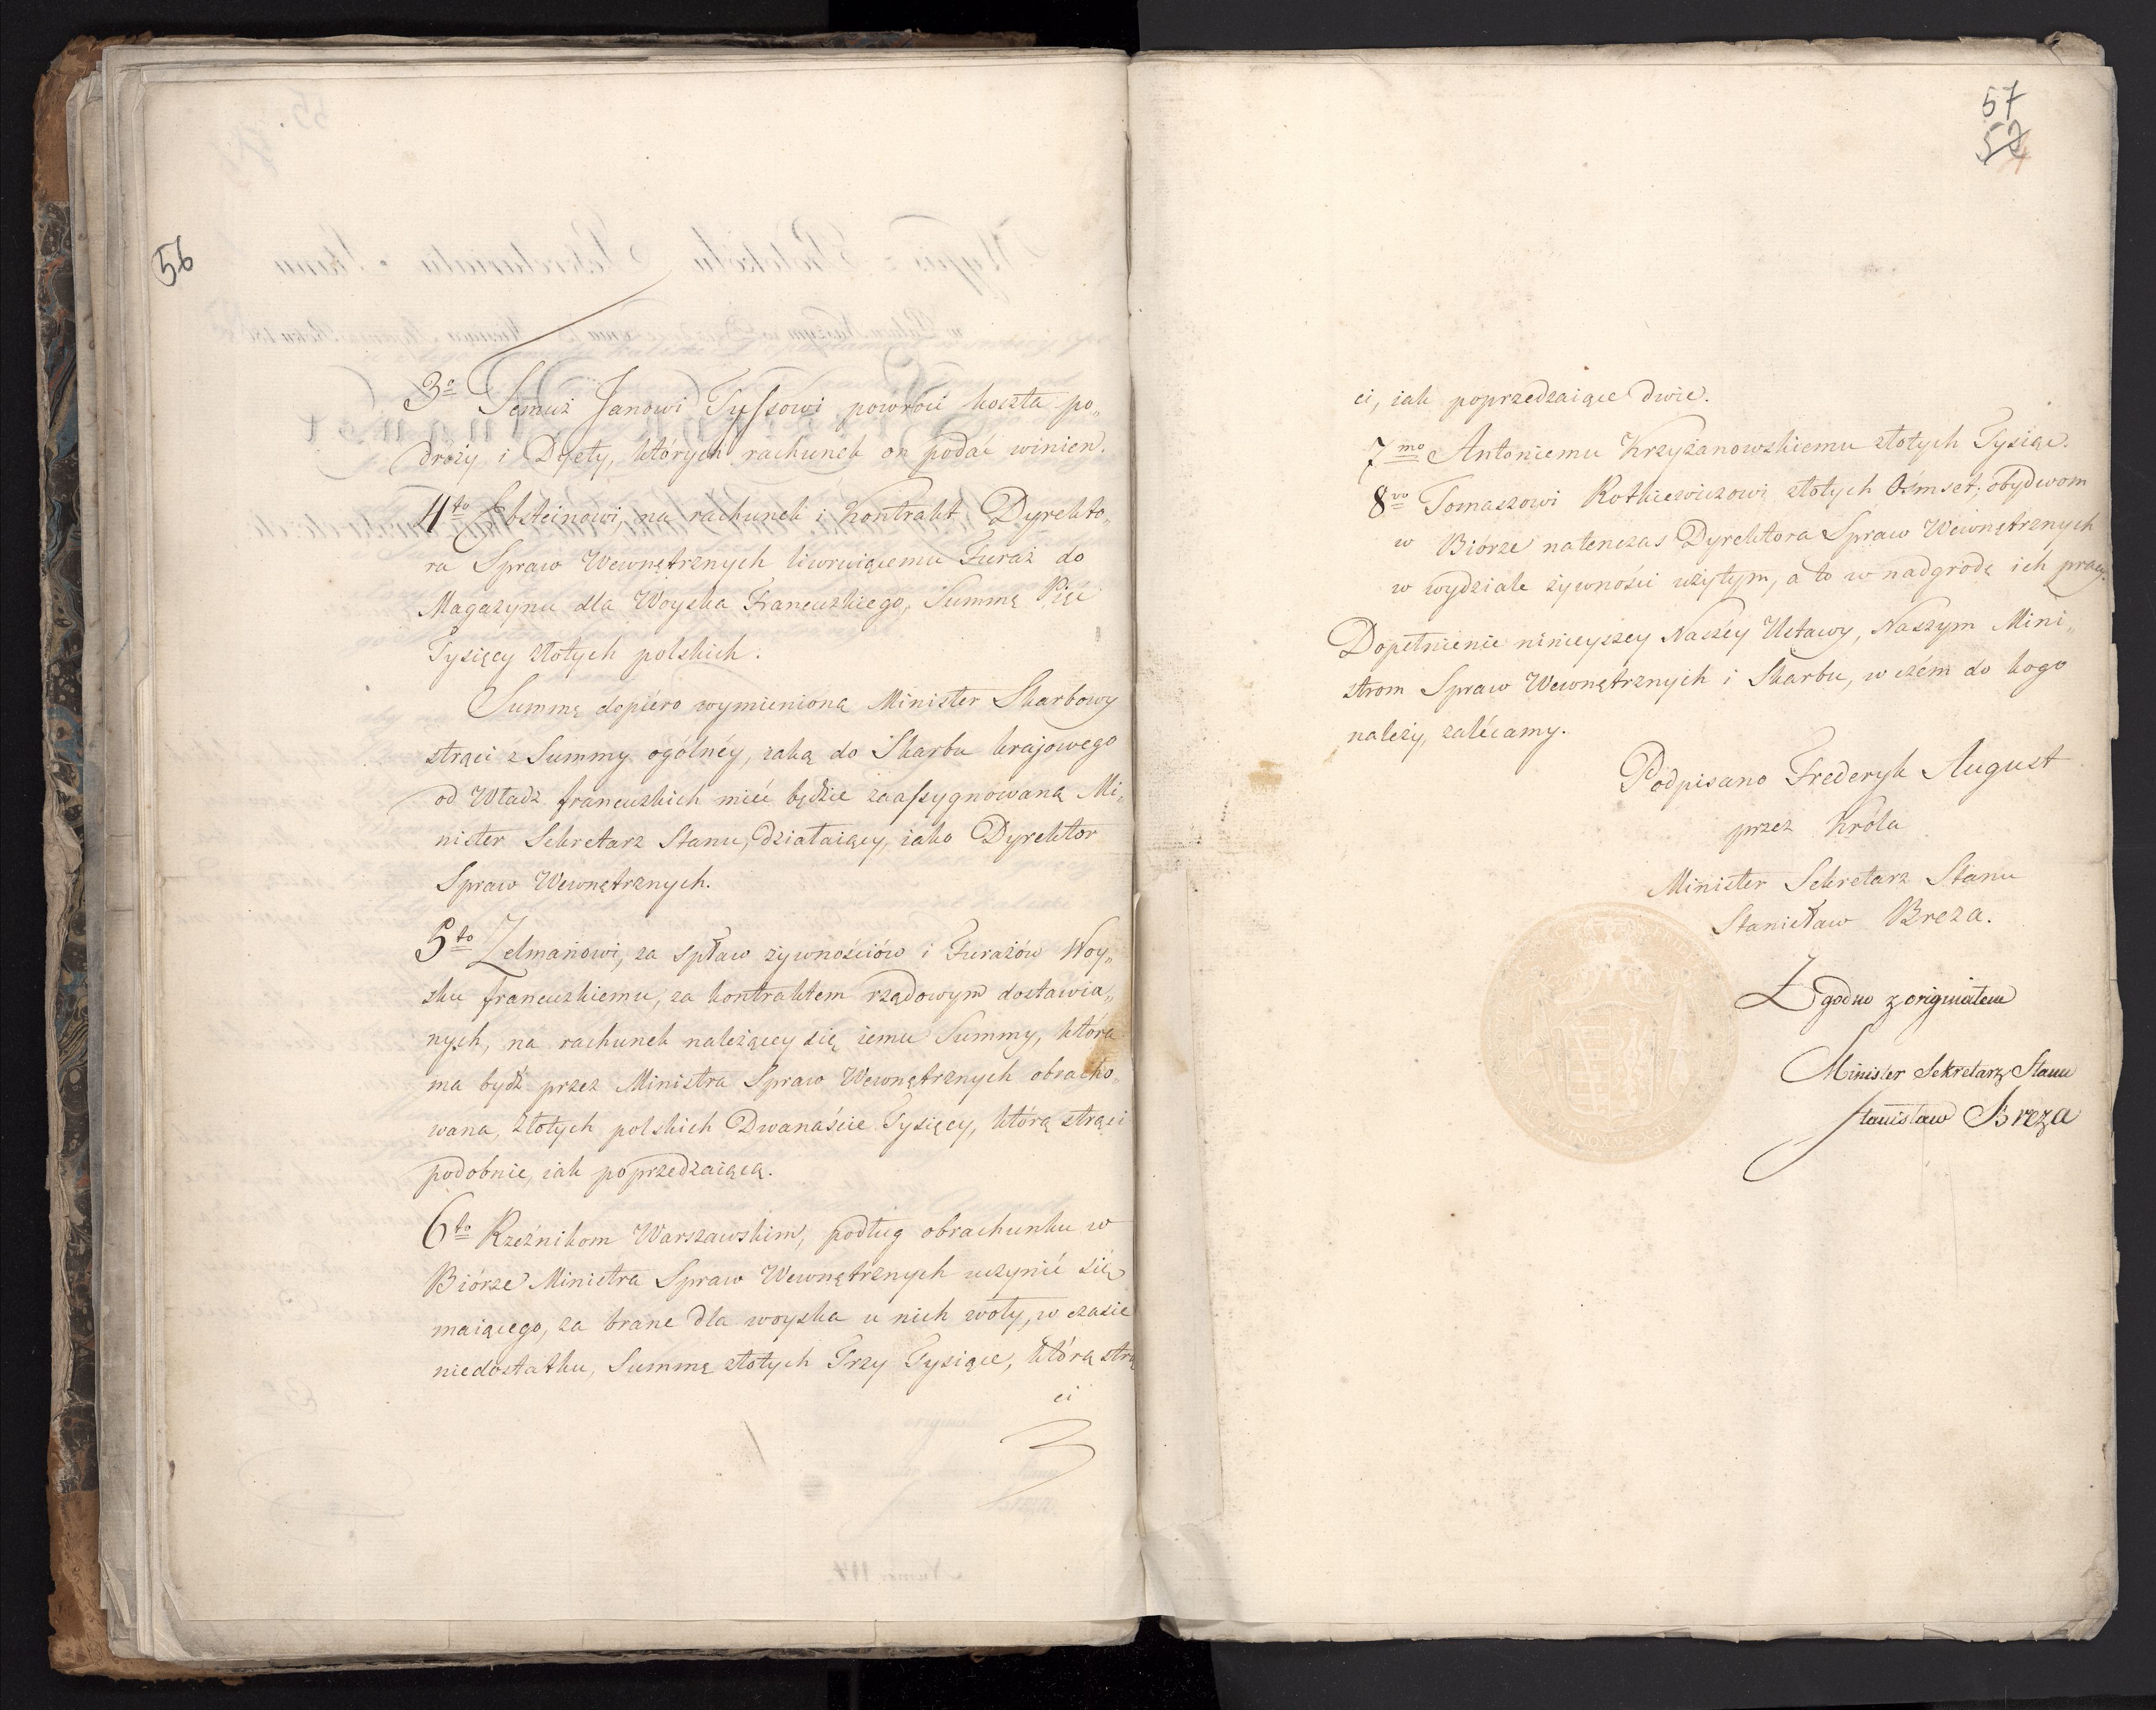 56
3o Temuż Janowi Tyssowi powróci koszta po„
dróży i Dyety, których rachunek on podać winien.
4to Ebsteinowi, na rachunek i kontrakt Dyrekto„
ra Spraw Wewnętrznych liwruiącemu Furaż do
Magazynu dla Woyska Francuzkiego, Summę Pięć
Tysięcy złotych polskich.
Summę dopiéro wymienioną Minister Skarbowy
strąci z Summy ogólnéy, iaką do Skarbu krajowego
od Władz francuzkich mieć będzie zaassygnowaną Mi„
nister Sekretarz Stanu, działaiący, iako Dyrektor
Spraw Wewnętrznych.
5to Zelmanowi, za spław żywnościów i Furażów Woy„
sku francuzkiemu, za kontraktem rządowym dostawia„
nych, na rachunek należącey się iemu Summy, która
ma bydź przez Ministra Spraw Wewnętrznych obracho„
wana, złotych polskich Dwanaście Tysięcy, którą strąci
podobnie, iak poprzedzaiącą.
6to Rzeźnikom Warszawskim, podług obrachunku w
Biórze Ministra Spraw Wewnętrznych uczynić się
maiącego, za brane dla woyska u nich woły, w czasie
niedostatku, Summę złotych Trzy Tysiące, którą strą
ci
57
ci, iak poprzedzaiące dwie.
7mo Antoniemu Krzyżanowskiemu złotych Tysiąc.
8vo Tomaszowi Rotkiewiczowi złotych Ośmset; obydwom
w Biórze natenczas Dyrektora Spraw Wewnętrznych
w wydziale żywności użytym, a to w nadgrodę ich pracy.
Dopełnienie ninieyszey Naszéy Ustawy, Naszym Mini„
strom Spraw Wewnętrznych i Skarbu, w czém do kogo
należy, zalécamy.
Podpisano Frederyk August
przez Króla
Minister Sekretarz Stanu
Stanisław Breza.
Zgodno z originałem
Minister Sekretarz Stanu
Stanisław Breza